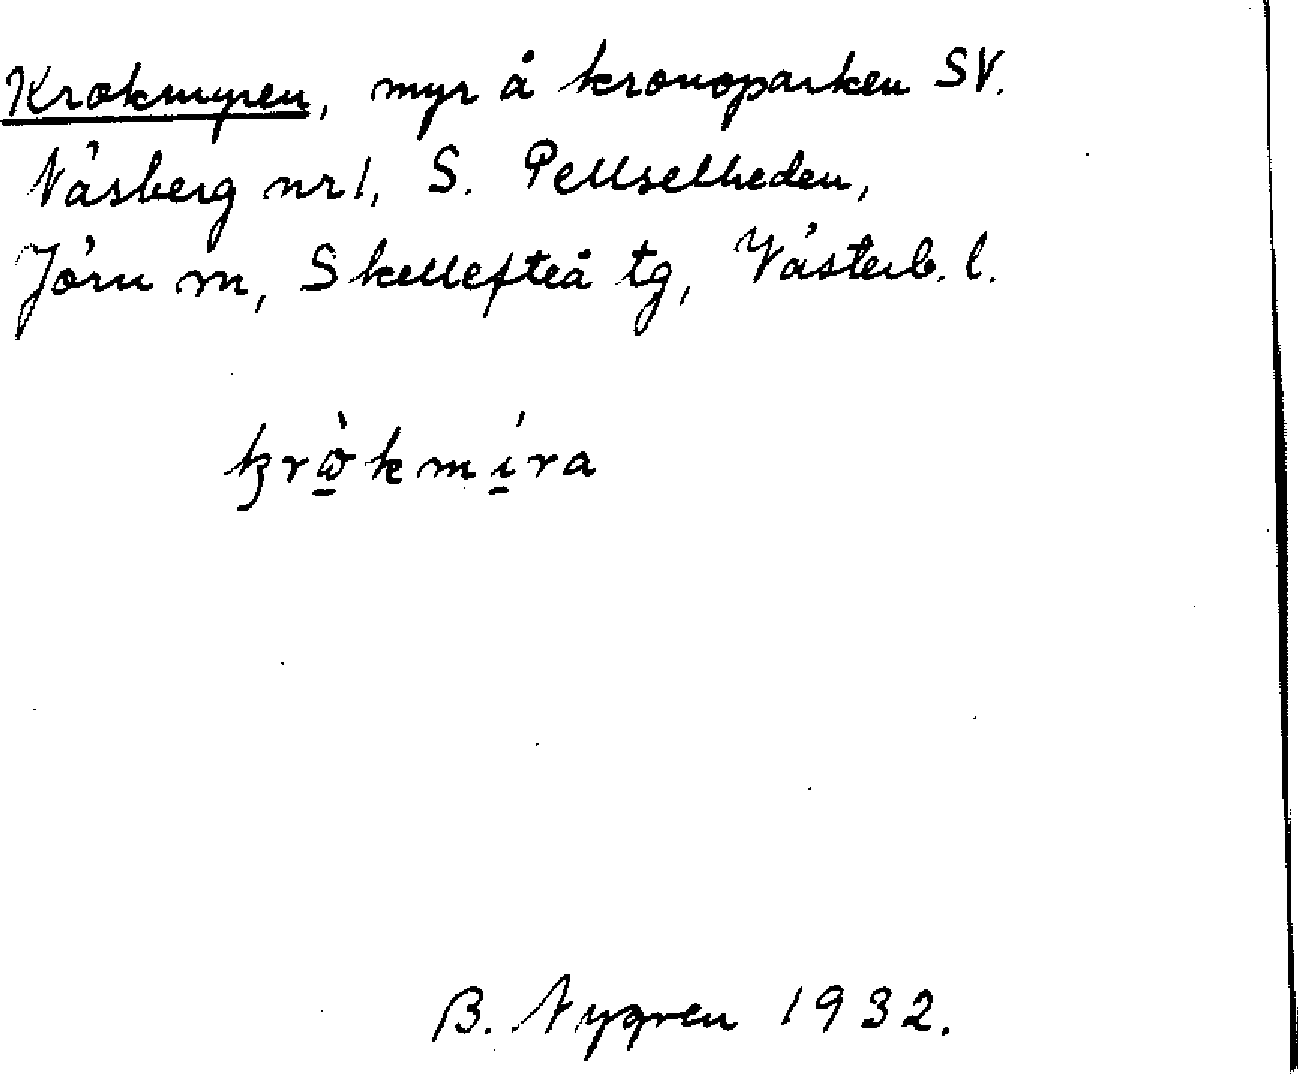 Krokmyren, myr å kronoparken SV.
Näsberg nr 1, S. Pellselheden,
Jörn sn, Skellefteå tg, Västerb. l.
krὼ̠kmí̠ra
B. Nygren 1932.